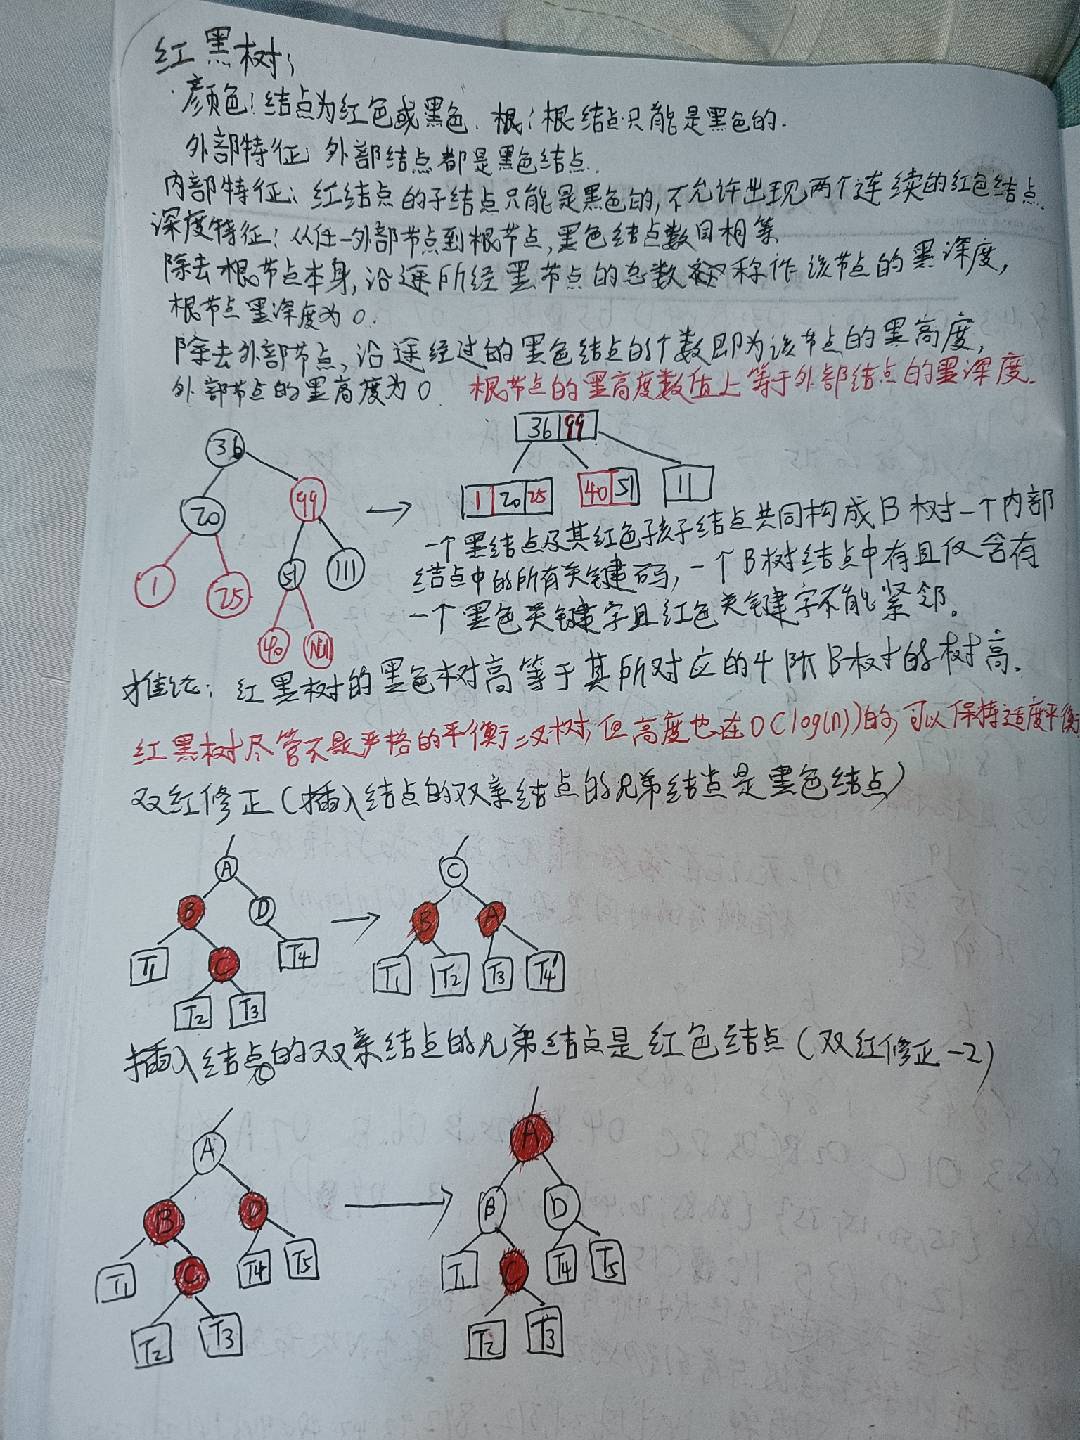 红黑树:
颜色:结点为红色或黑色. 根:根结点只能是黑色的.
外部特征: 外部结点都是黑色结点.
内部特征: 红结点的子结点只能是黑色的,不允许出现两个连续的红色结点.
深度特征: 从任一外部节点到根节点,黑色结点数目相等
除去根节点本身,沿途所经黑节点的总数称作该节点的黑深度,
根节点黑深度为0.
除去外部节点,沿途经过的黑色结点的个数即为该节点的黑高度,
外部节点的黑高度为0 根节点的黑高度数值上等于外部结点的黑深度.
36 → 36 99
20 99
1 20 25 40 51 11
1 25 51 111
40 Nil
一个黑结点及其红色孩子结点共同构成B树一个内部
结点中的所有关键码,一个B树结点中有且仅含有
一个黑色关键字且红色关键字不能紧邻。
推论: 红黑树的黑色树高等于其所对应的4阶B树的树高.
红黑树尽管不是严格的平衡二叉树,但高度也在O(log(n))的,可以保持适度平衡
双红修正(插入结点的双亲结点的兄弟结点是黑色结点)
A → C
B D B A
T1 C T4 T1 T2 T3 T4
T2 T3
插入结点的双亲结点的兄弟结点是红色结点(双红修正-2)
A → A
B D B D
T1 C T4 T5 T1 C T4 T5
T2 T3 T2 T3